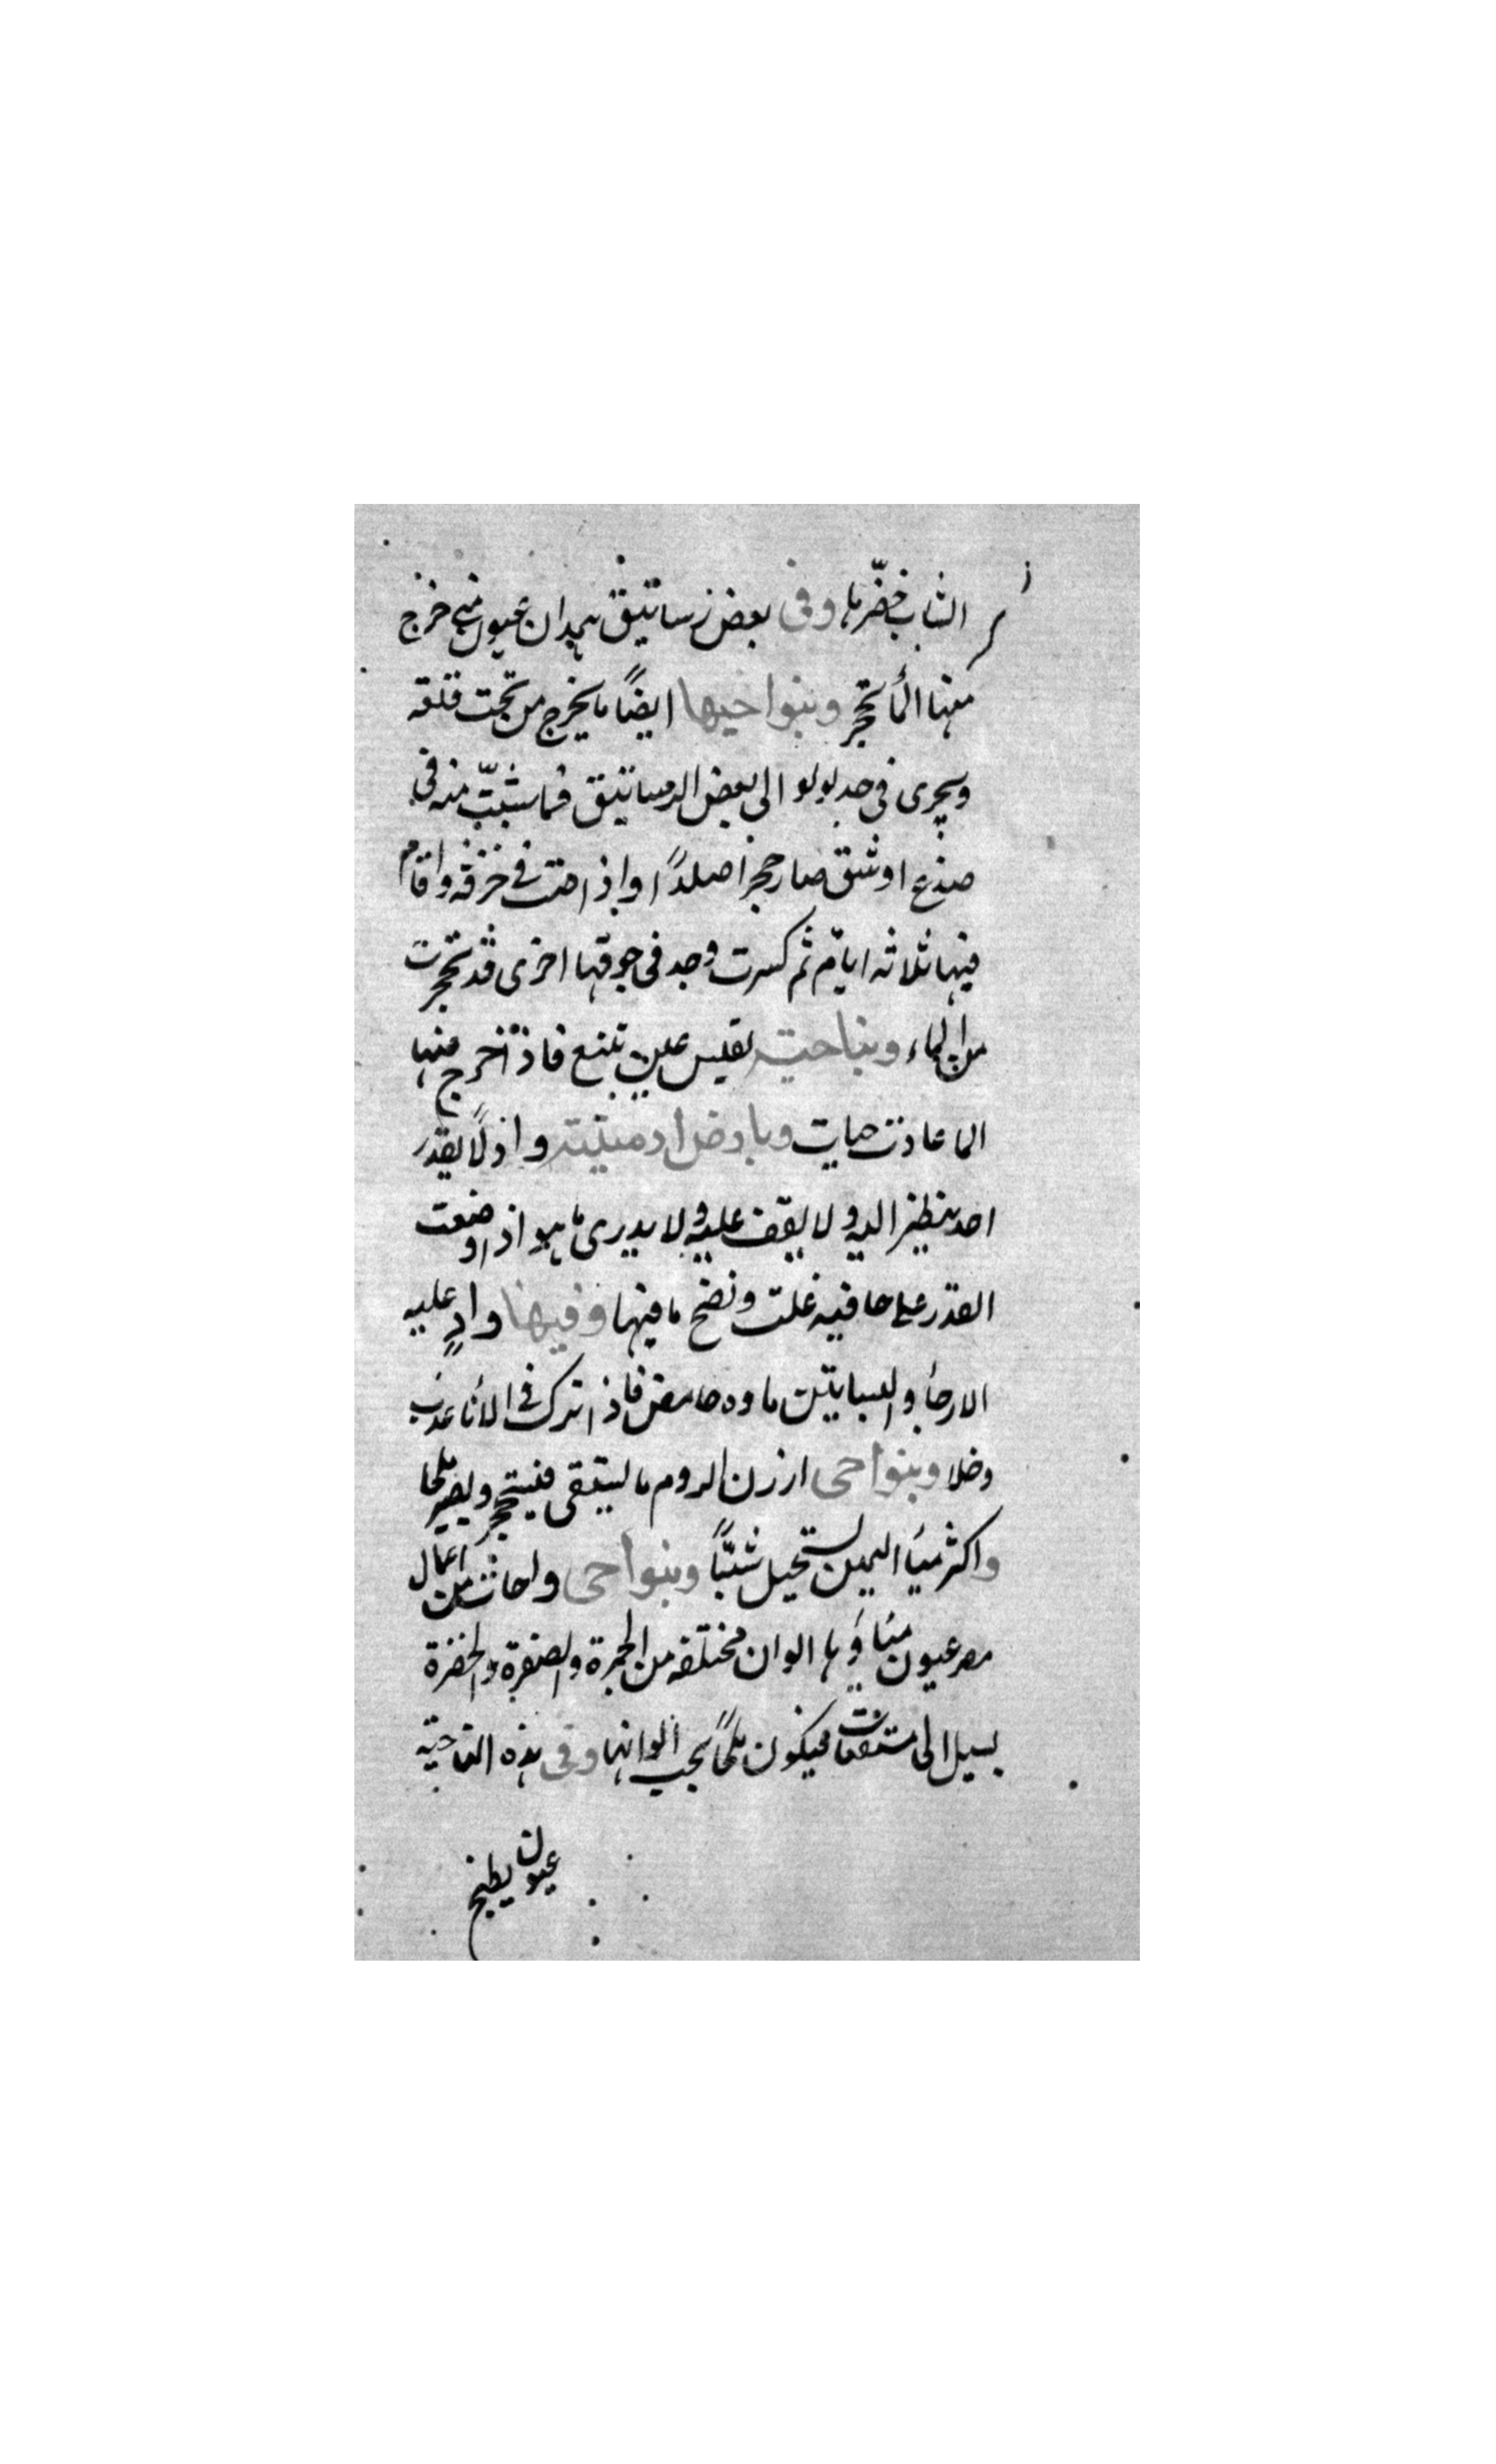 الشاب خضّرها وفى بعض رساتيق همدان عيون متى خرج
منها المأ تحجر وبنواحيها ايضًا ما يخرج من تحت قلعة
ويجرى فى جدبولو الى بعض الرساتيق فما شبّت منه فى
صدع او شق صار حجرا صلدًا واذا صب فى خزفه واقام
فيها ثلاثه ايام ثم كسرت وجد فى جوفها اخرى قد تحجرت
من الماء وبناحية تفليس عين تنبع فاذا خرج منها
الما عادت حيات وبارض ارمينية واد لا يقدر
احد ينظر اليه ولا يقف عليه ولا يدرى ما هو اذا وضعت
القدر على حافيه غلت ونضج ما فيها وفيها وادٍ عليه
الارحأ والبساتين ماوه حامض فاذا ترك فى الانأ عذب
وحلا وبنواحى ارزن الروم ما يستقى فيتحجر ويصير ملحا
واكثر ميأ اليمن يستحيل شبًّا وبنواحى واحات من اعمال
مصر عيون مياؤها الوان مختلفه من الحمرة والصفرة والخضرة
يسيل الى مستنقعات فيكون ملحًا بحسب الوانها وفى هذه الناحية
عيون يطبخ